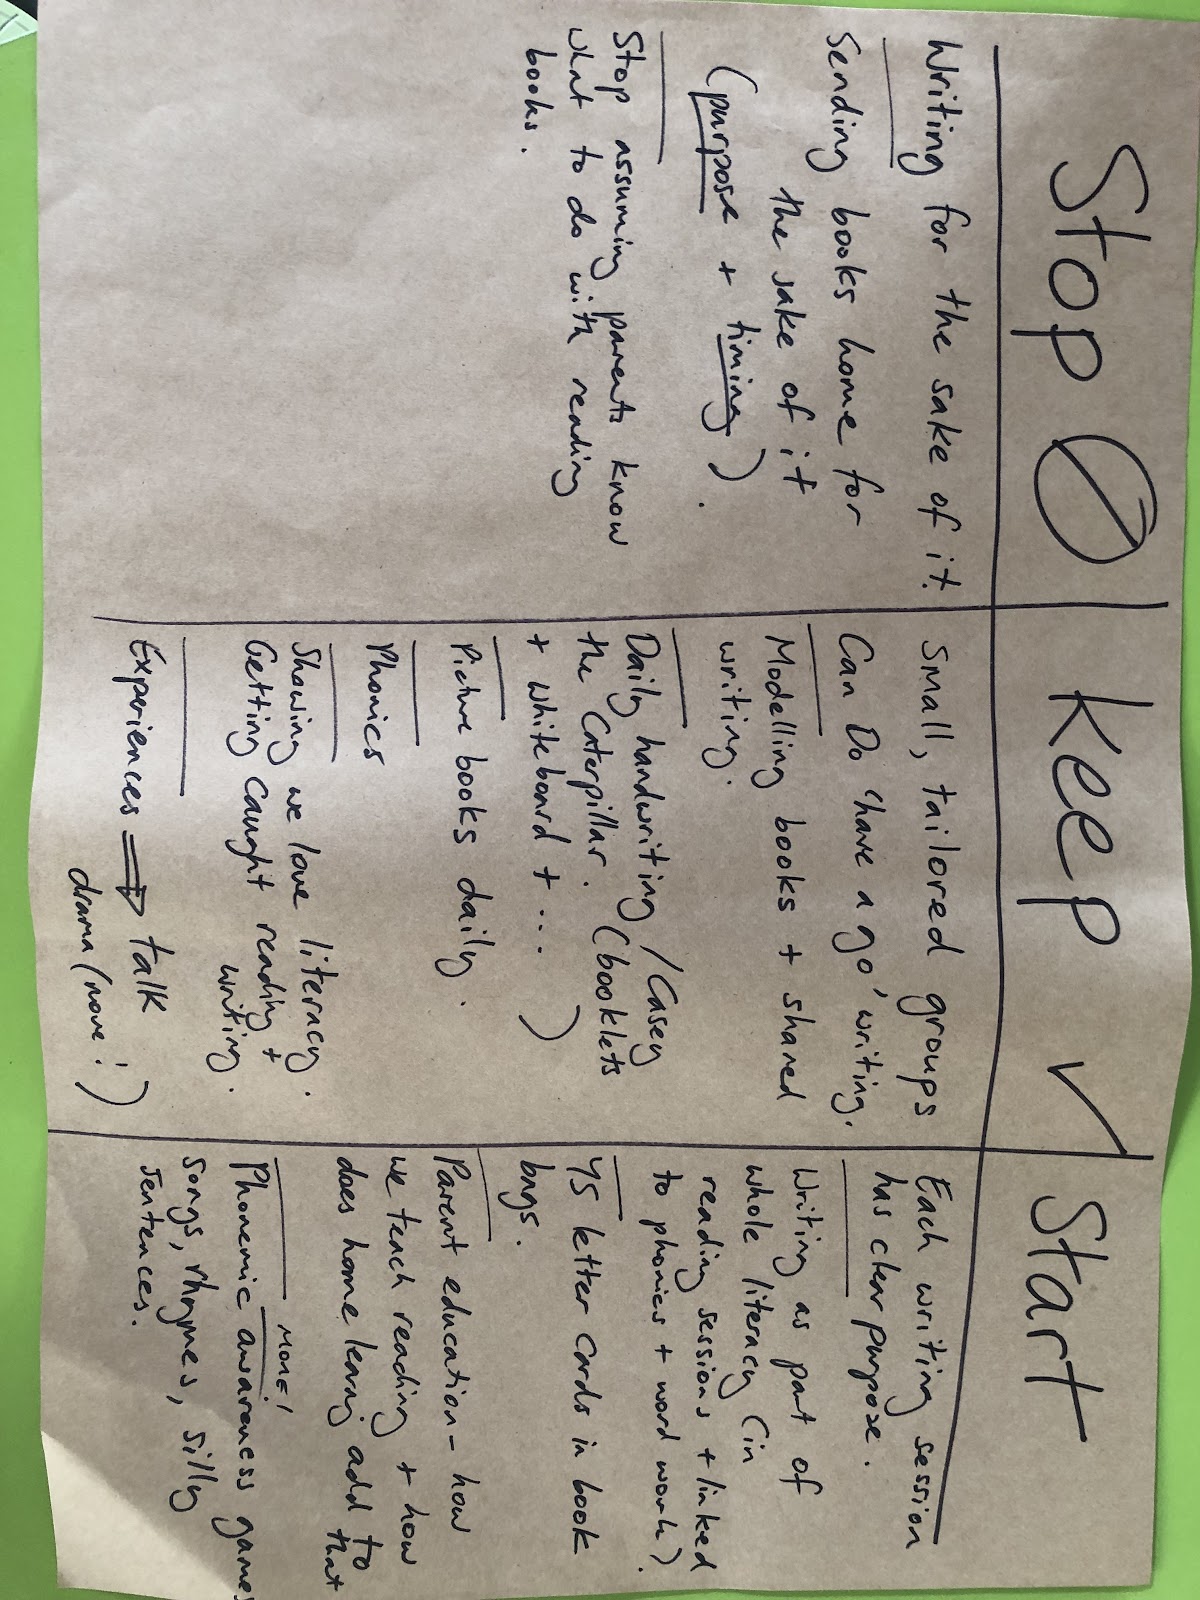 Stop
Writing for the sake of it.
Sending books home for
the sake of it
(purpose + timing).
Stop assuming parents know
what to do with reading
books.
Keep ✓
Small, tailored groups
Can Do 'have a go' writing.
Modelling books + shared
writing.
Daily handwriting / Casey
the Caterpillar. (booklets
+ whiteboard + ... )
Picture books daily.
Phonics
Showing we love literacy.
Getting caught reading +
writing.
Experiences ⇒ talk
drama (more!)
Start
Each writing session
has clear purpose.
Writing as part of
whole literacy (in
reading sessions + linked
to phonics + word work).
Y5 letter cards in book
bags.
Parent education - how
we teach reading + how
does home learning add to
that
more!
Phonemic awareness games
songs, rhymes, silly
sentences.